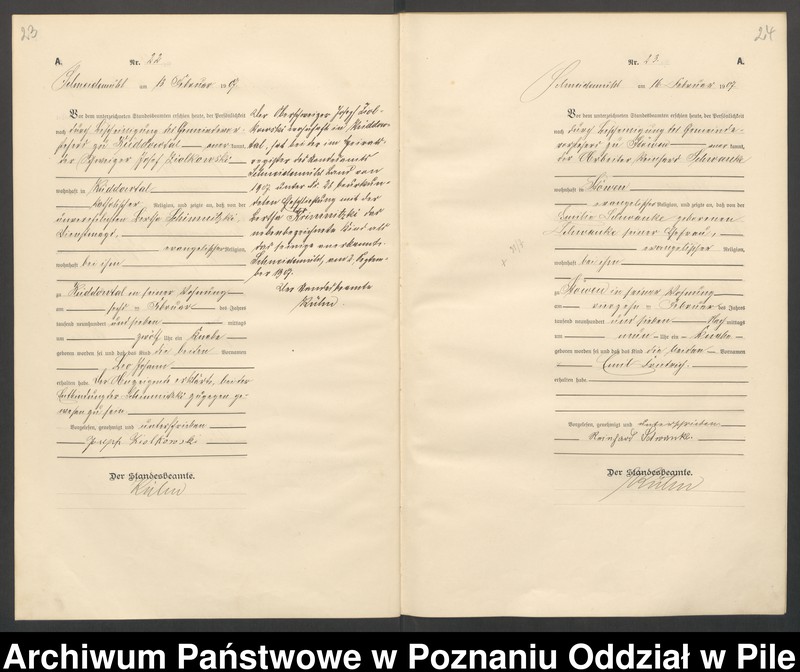 23
A.
Nr. 22
Schneidemühl am Februar 1907.
Vor dem unterzeichneten Standesbeamten erschien heute, der Persönlichkeit
nach durch Bescheinigung des Gemeindevor-
stehers zu Küddowtal kannt,
der Schweizer Josef Ziolkowski
wohnhaft in Küddowtal
katholischer Religion, und zeigte an, daß von der
unverehelichten Bertha
Dienstmagd,
evangelischer Religion,
wohnhaft bei ihm
zu Küddowtal in seiner Wohnung
am Februar des Jahres
tausend neunhundert und sieben mittags
um zwölf Uhr ein Knabe
geboren worden sei und daß das Kind die beiden Vornamen
Leo Johann
erhalten habe. Der Anzeigende erklärte, bei der
Entbindung der zugegen ge-
wesen zu sein.
Vorgelesen, genehmigt und unterschrieben
Joseph Ziolkowski
Der Standesbeamte.
Kühn
Der Oberschweizer Josef Ziol-
kowski wohnhaft in Küddow-
tal, hat bei der im Heirats-
register des Standesamts
Schneidemühl Land von
1907 unter Nr. beurkun-
deten Eheschließung mit der
Bertha das
nebenbezeichnete Kind als
das seinige anerkannt.
Schneidemühl, am 2. Septem-
ber 1907.
Der Standesbeamte
Kühn.
24
Nr. 23
A.
Schneidemühl am 16. Februar 1907.
Vor dem unterzeichneten Standesbeamten erschien heute, der Persönlichkeit
nach durch Bescheinigung des Gemeinde-
vorstehers zu Stöwen kannt,
der Arbeiter Reinhard Schwanke
wohnhaft in Stöwen
evangelischer Religion, und zeigte an, daß von der
Emilie Schwanke geborenen
Schwanke seiner Ehefrau,
evangelischer Religion,
wohnhaft bei ihm
zu Stöwen in seiner Wohnung
am Februar des Jahres
tausend neunhundert und sieben Nachmittags
um neun Uhr ein Knabe
geboren worden sei und daß das Kind die beiden Vornamen
Emil
erhalten habe.
Vorgelesen, genehmigt und unterschrieben
Reinhard Schwanke.
Der Standesbeamte.
Kühn
Archiwum Państwowe w Poznaniu Oddział w Pile